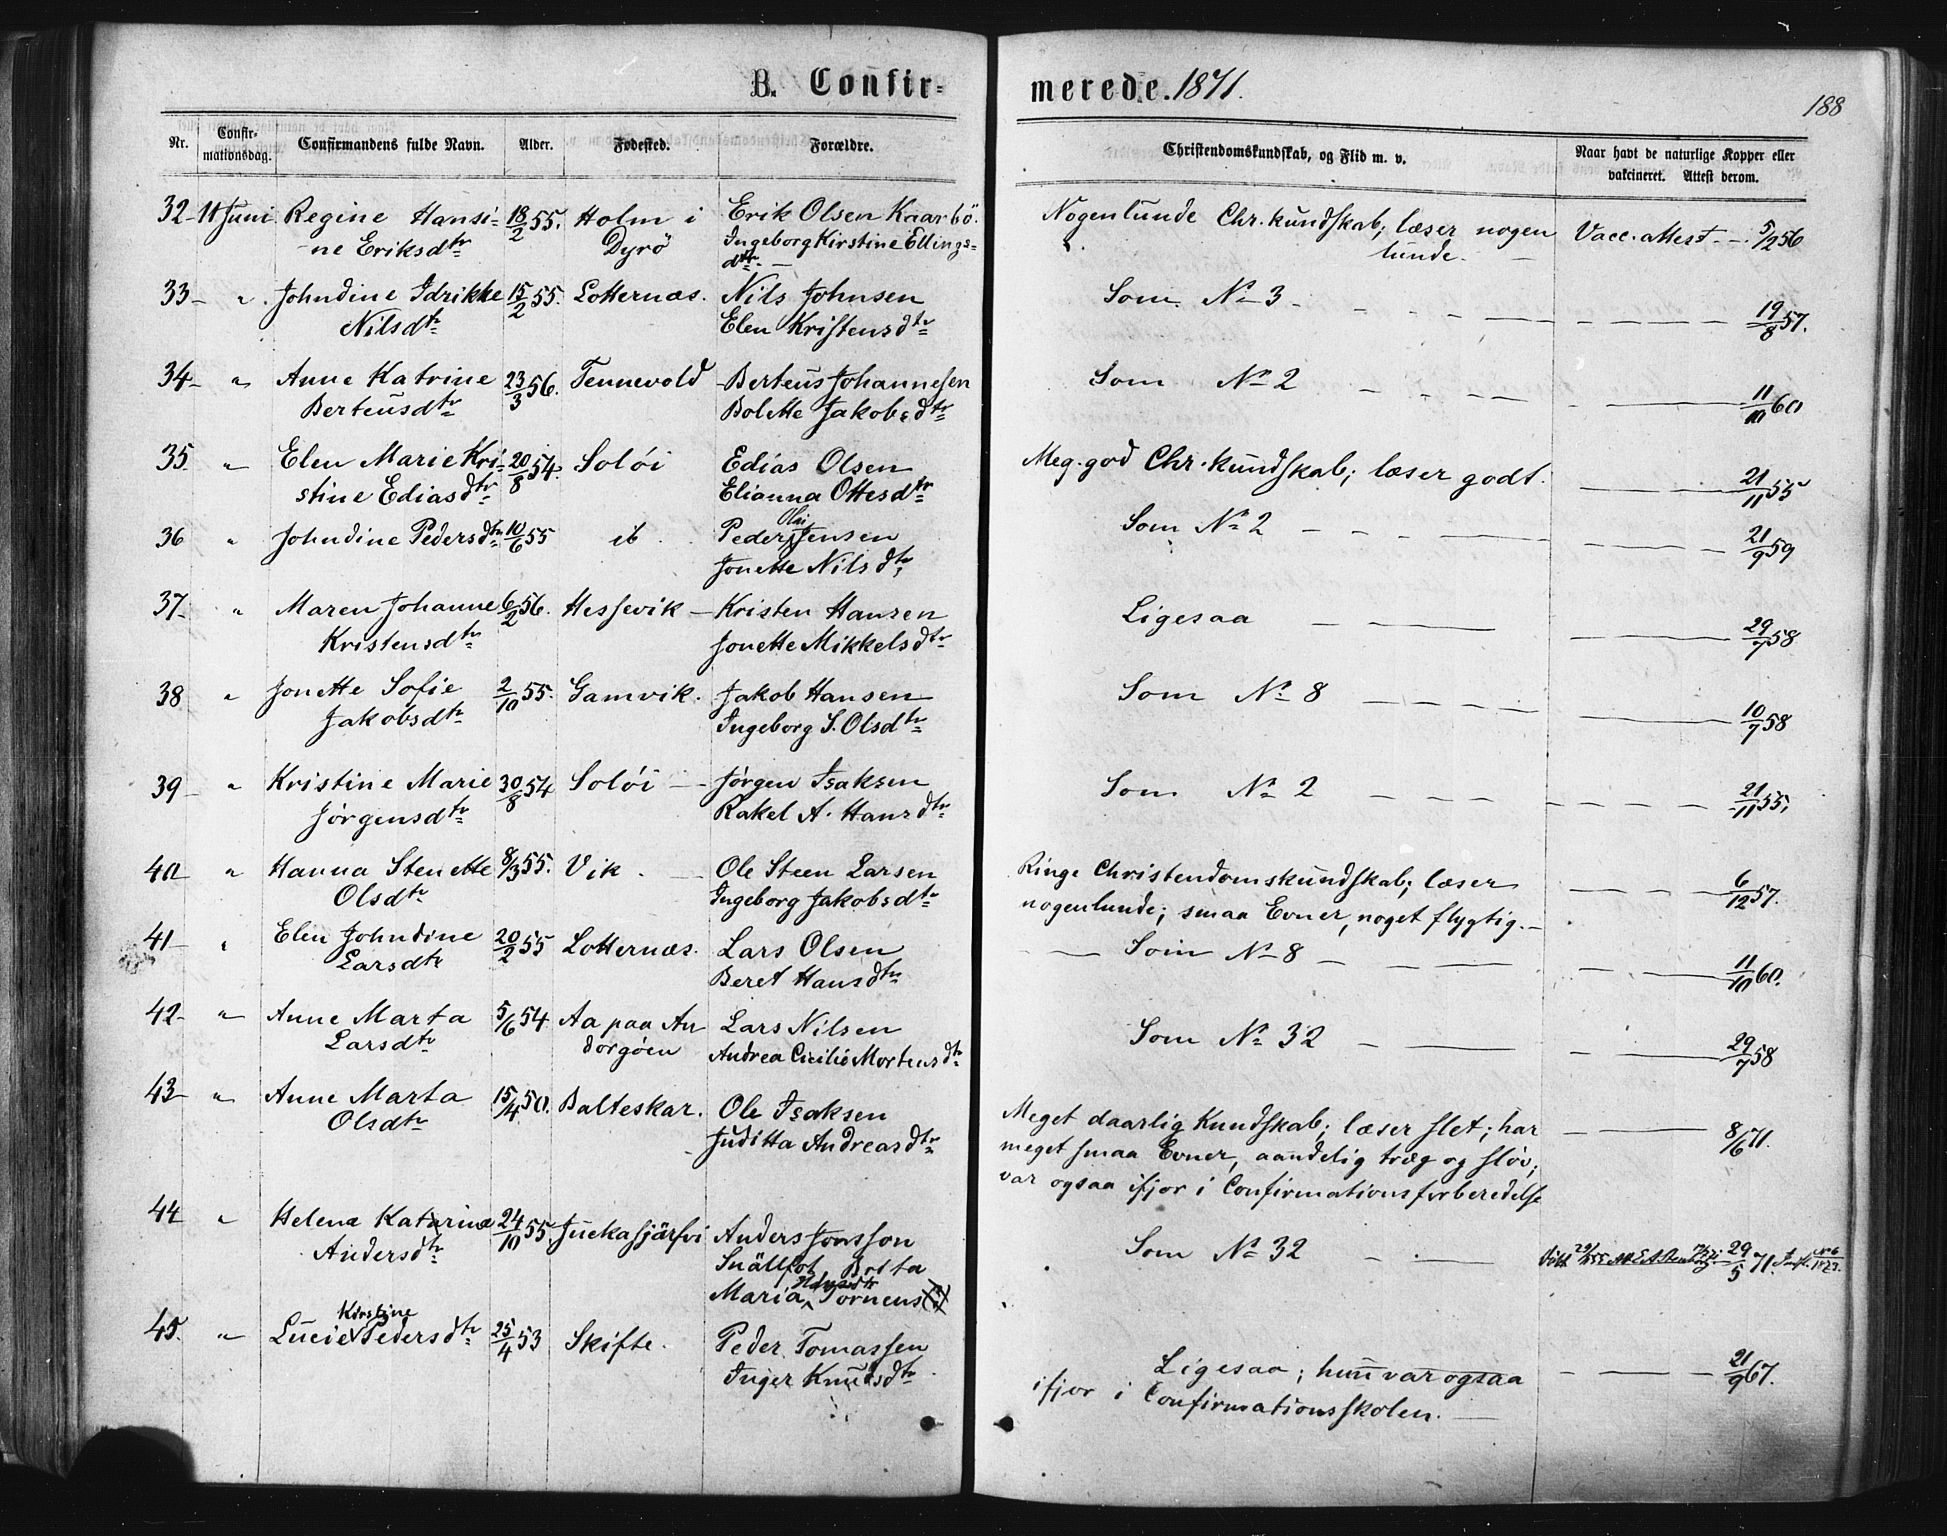 B. Confir-
merede. 1871.
188
Nr.
Confir-
mationsdag.
Confirmandens fulde Navn.
Alder.
Fødested.
Forældre.
Christendomskundskab, og Flid m. v.
Naar havt de naturlige Kopper eller
vakcineret. Attest derom.
32 - 11 Juni Regine Hansi- 18/2 55. Holm i Erik Olsen Kaarbö. Nogenlunde Chr.kundskab; læser nogen Vacc. attest - 5/2 56
ne Eriksdtr Dyrö Ingeborg Kirstine Ellings- lunde.
dtr
33 - " Johndine Idrikke 15/2 55. Lotternæs. Nils Johnsen Som No 3 - 19/8 57.
Nilsdtr Elen Kristensdtr
34 - " Anne Katrine 23/3 56. Tennevold Berteus Johannesen Som No 2 11/10 60
Berteusdtr Bolette Jakobsdtr
35 " Elen Marie Kri- 20/8 54. Solöi Edias Olsen Meg. god Chr.kundskab; læser godt. 21/11 55
stine Ediasdtr Elianna Ottesdtr
36 " Johndine Pedersdtr 10/6 55 ib. Peder Olai Jensen Som No 2 21/9 59
Jonette Nilsdtr
37 " Maren Johanne 6/2 56. Hessevik - Kristen Hansen Ligesaa 29/7 58
Kristensdtr Jonette Mikkelsdtr
38 " Jonette Sofie 2/10 55. Gamvik. Jakob Hansen Som No 8 10/7 58
Jakobsdtr Ingeborg S. Olsdtr
39 - " Kristine Marie 30/8 54 Solöi - Jørgen Isaksen Som No 2 21/11 55.
Jørgensdtr Rakel A. Hansdtr
40 " Hanna Stenette 8/3 55. Vik. Ole Steen Larsen Ringe Christendomskundskab; læser 6/12 57.
Olsdtr Ingeborg Jakobsdtr nogenlunde; smaa Evner, noget flygtig. -
41 - " Elen Johndine 20/2 55 Lotternæs. Lars Olsen Som No 8 11/10 60.
Larsdtr Beret Hansdtr
42 - " Anne Marta 5/6 54 Aa paa An Lars Nilsen Som No 32 29/7 58
Larsdtr dorgöen Andrea Cicilie Mortensdtr
43 - " Anne Marta 15/4 50. Balteskar. Ole Isaksen Meget daarlig Kundskab; læser slet; har 8/6 71.
Olsdtr Juditta Andreasdtr meget smaa Evner, aandelig træg og sløv;
var ogsaa ifjor i Confirmationsforberedelse
44 " Helena Katarina 24/10 55. Juckasjärfvi Anders Jonsson Som No 32 29/5 71.
Andersdtr Snällfot Brita
Maria Tornens
45. " Lucie Kirstine Pedersdtr 25/4 53 Skifte. Peder Tomassen Ligesaa; hun var ogsaa 21/9 67.
Inger Knudsdtr ifjor i Confirmationsskolen. -